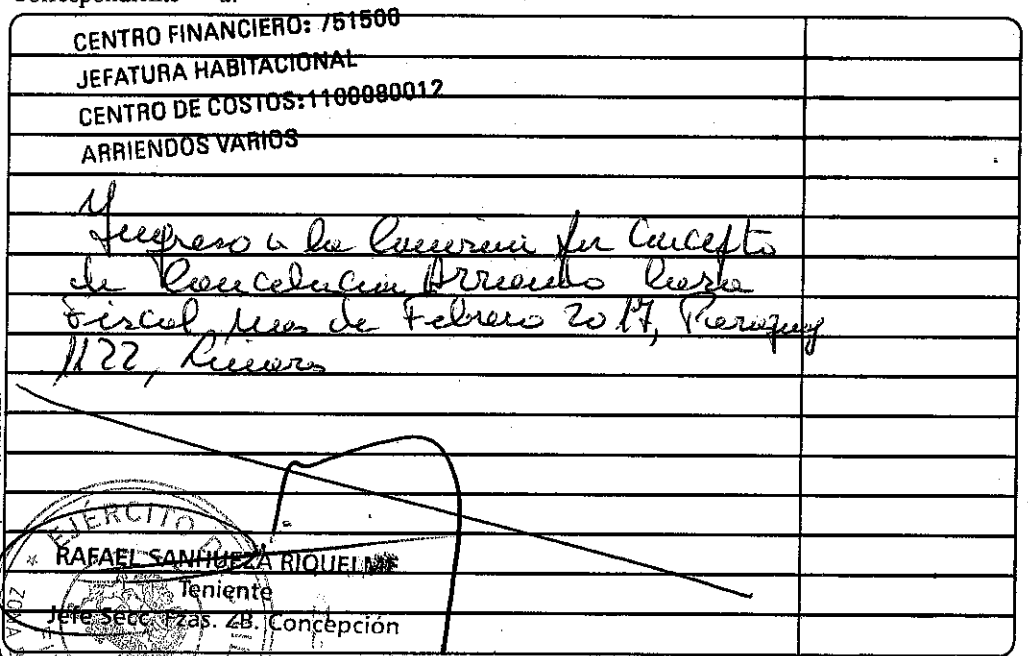 CENTRO FINANCIERO: 751500
JEFATURA HABITACIONAL
CENTRO DE COSTOS:1100080012
ARRIENDOS VARIOS
Ingreso a la por Concepto
de Cancelación Arriendo Casa
Fiscal, mes de Febrero 2017, Paraguay
1122, Linares
EJÉRCITO
RAFAEL SANHUEZA RIQUELME
Teniente
Jefe Secc. Fzas. ZB. Concepción
ZONA